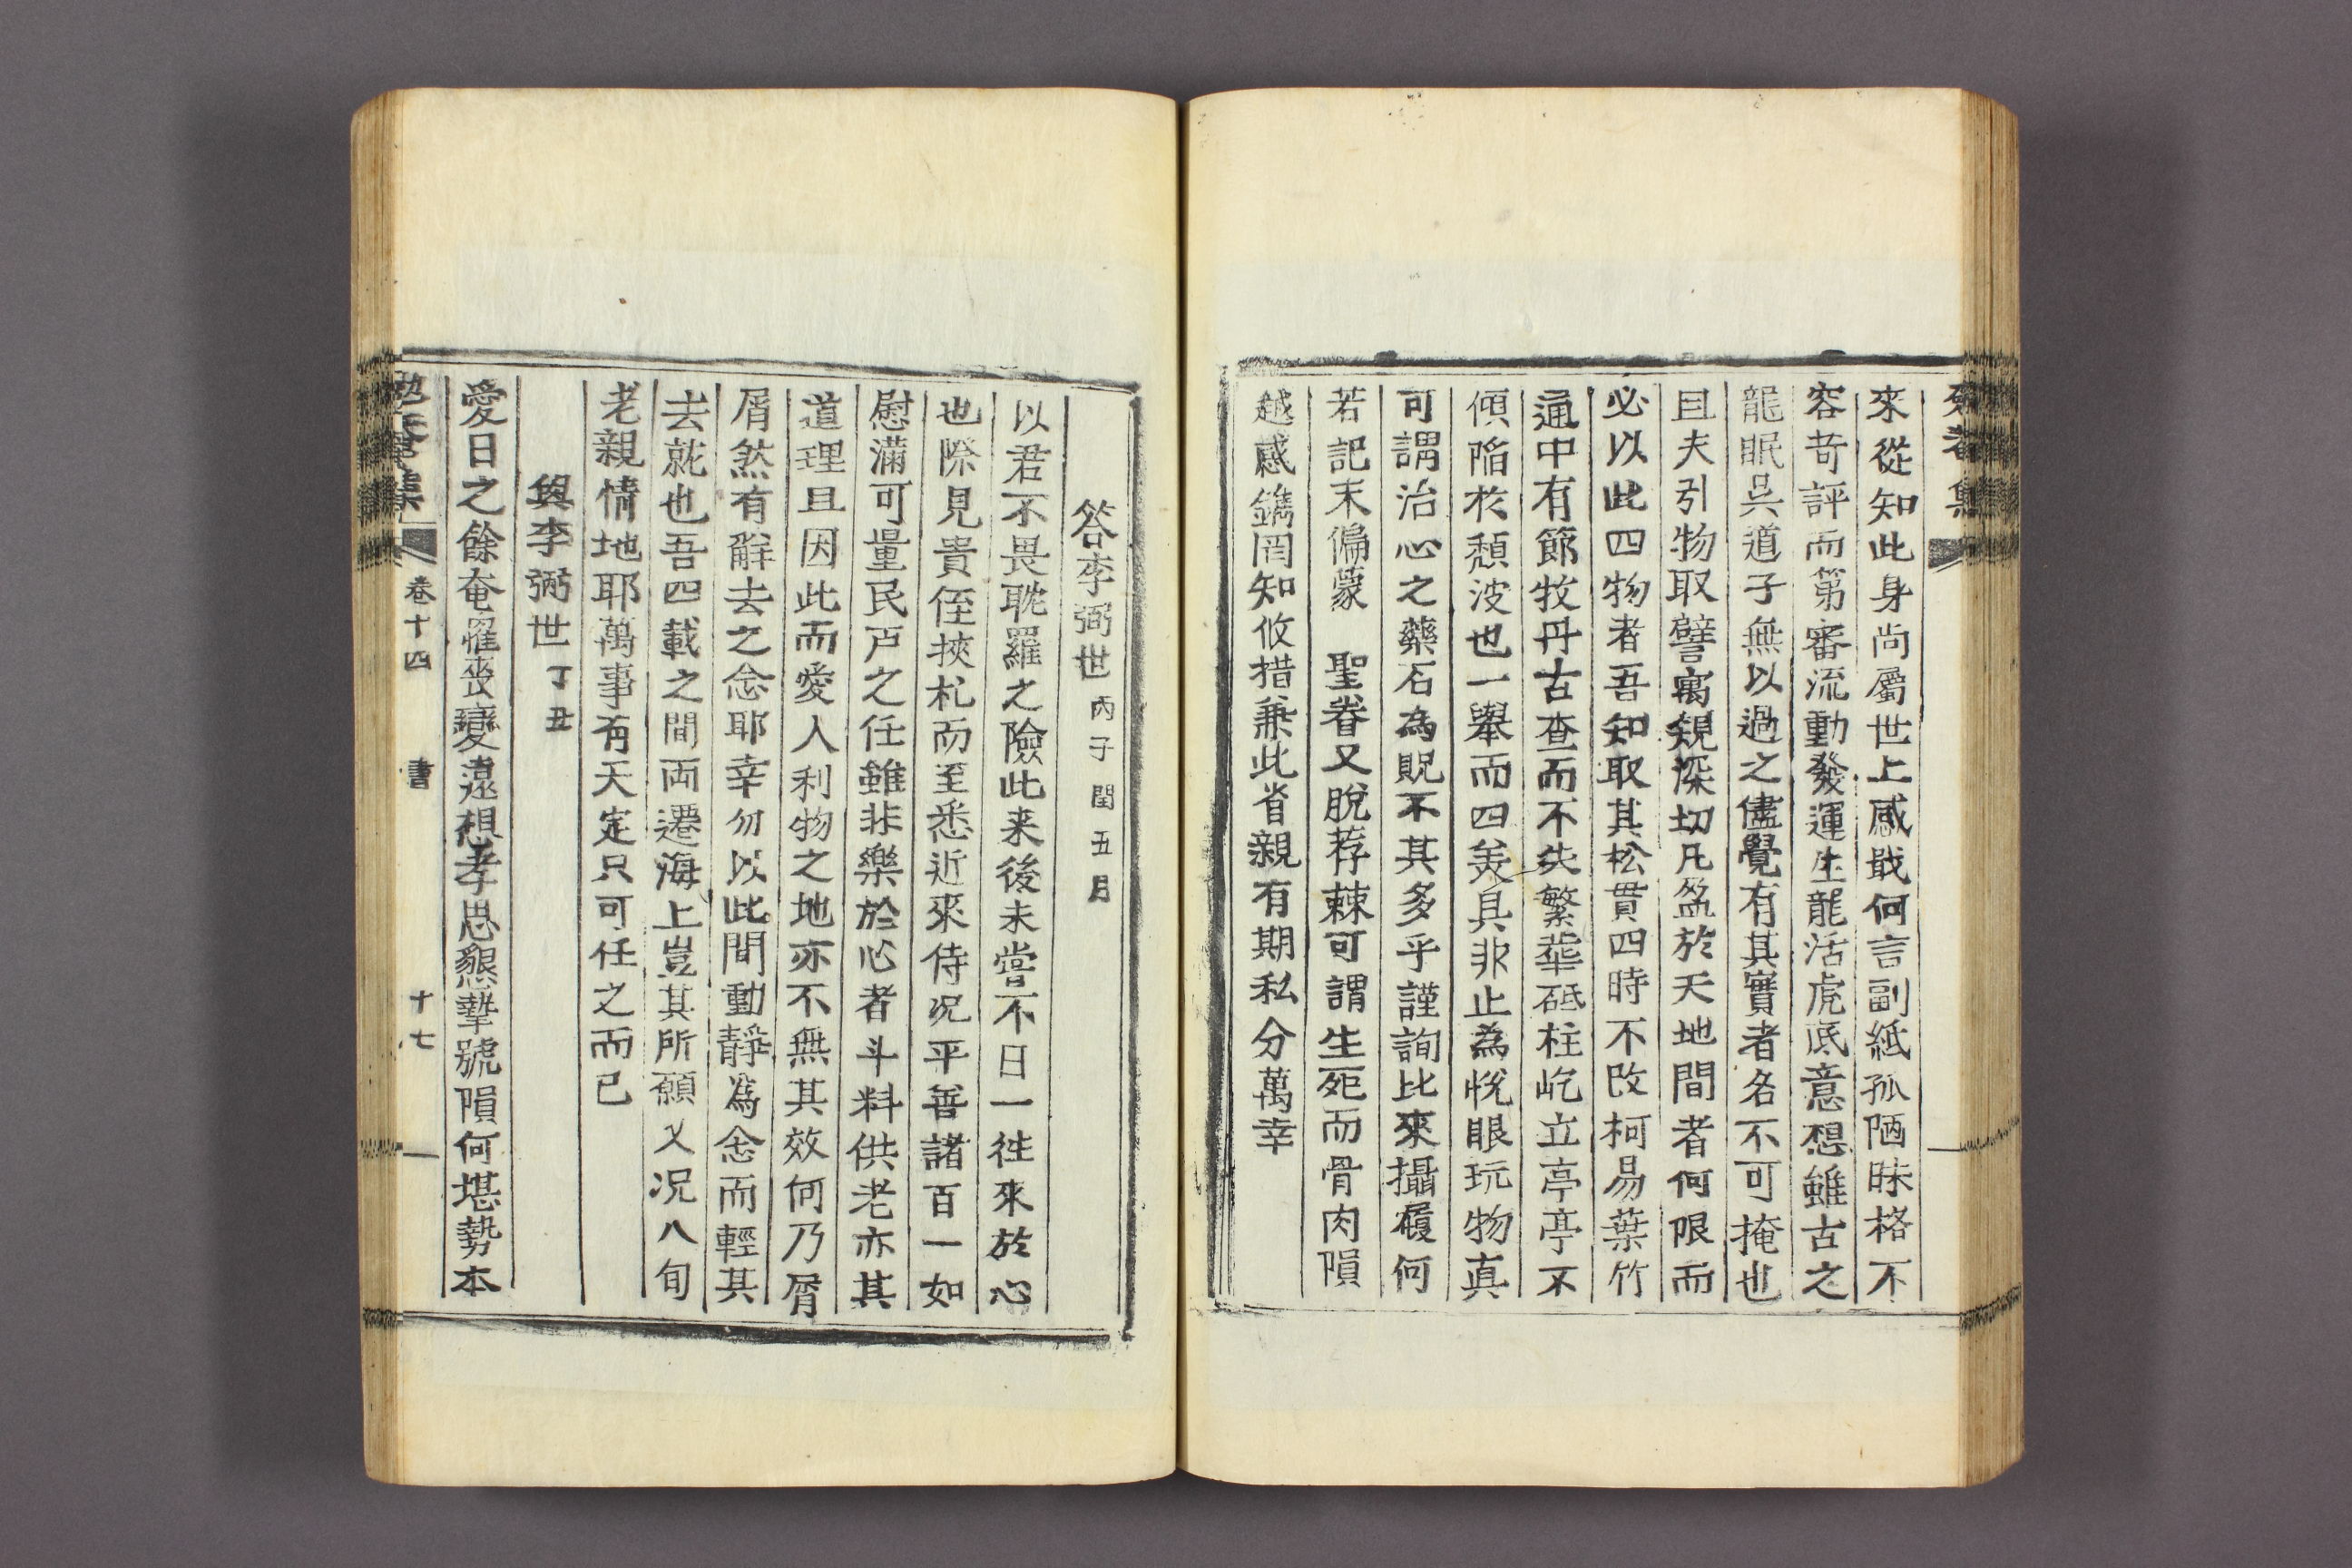 來從知此身尚屬世上感戢何言副紙孤陋昧格不
容苛評而第審流動發運生龍活虎底意想雖古之
龍眠吳道子無以過之儘覺有其實者名不可掩也
且夫引物取譬寓規深切凡盈於天地間者何限而
必以此四物者吾知取其松貫四時不改柯易葉竹
通中有節牧丹古査而不失繁華砥柱屹立亭亭不
傾陷於頹波也一舉而四美具非止為悅眼玩物真
可謂治心之藥石為貺不其多乎謹詢比來攝履何
若記末偏蒙　聖眷又脫荐棘可謂生死而骨肉隕
越感鐫罔知攸措兼此省親有期私分萬幸
答李弼世 丙子閏五月
以君不畏耽羅之險此来後未嘗不日一往來於心
也際見貴侄挾札而至悉近來侍况平善諸百一如
慰滿可量民戶之任雖非樂於心者斗料供老亦其
道理且因此而愛人利物之地亦不無其效何乃屑
屑然有辭去之念耶幸勿以此間動靜為念而輕其
去就也吾四載之間両遷海上豈其所願乂况八旬
老親情地耶萬事有天定只可任之而已
與李弼世 丁丑
愛日之餘奄罹丧變遠想孝思懇摯號隕何堪勢本
勉菴集 卷十四 書 十七